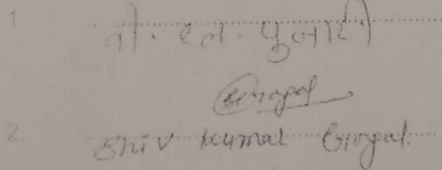 1. बी. एल. पुजारी
2. Shiv Kumar Goyal